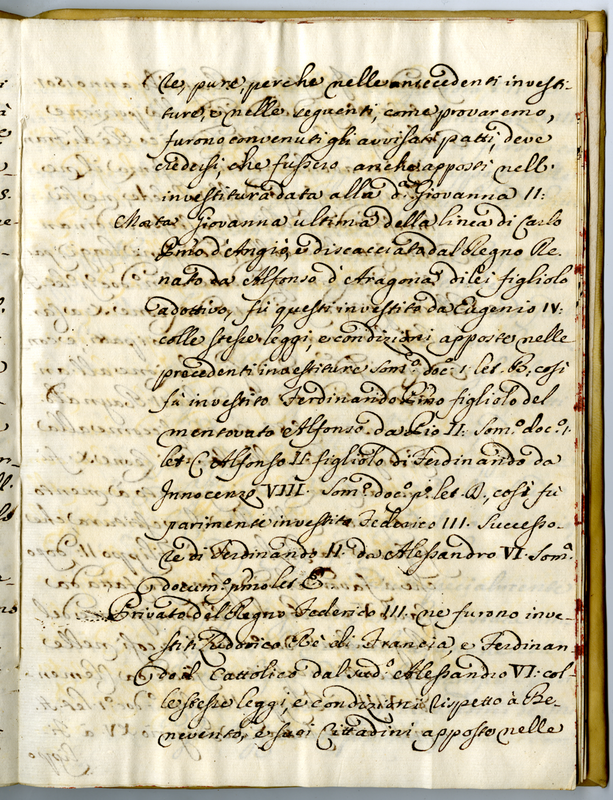 te, pure, perche nelle antecedenti investi-
ture, e nelle seguenti, come provaremo,
furono convenuti gli avvisati patti, deve
credersi, che fussero anche apposti nell'
investitura data alla d.ª Giovanna II:
Morta Giovanna ultima della linea di Carlo
Pmo d'Angiò, e discacciato dal Regno Re-
nato da Alfonso d'Aragona di lei figliolo
adottivo, fù questi investito da Eugenio IV:
colle stesse leggi, e condizioni apposte nelle
precedenti investiture Som.º doc.º 1. let. B, così
fù investito Ferdinando Pmo figliolo del
mentovato Alfonso da Pio II: Som.º doc.º 1.
let. C. Alfonso II figliolo di Ferdinando da
Innocenzo VIII. Som.º doc.º p.º let. D, così fù
parimente investito Federico III. Successo-
re di Ferdinando II. da Alessandro VI. Som.º
docum.º pmo let. E
Privato del Regno Federico III. ne furono inve-
stiti Ludovico Rè di Francia, e Ferdinan-
do il Cattolico dal sud.º Alessandro VI. col-
le stesse leggi, e condizioni rispetto à Be-
nevento, e suoi Cittadini apposte nelle